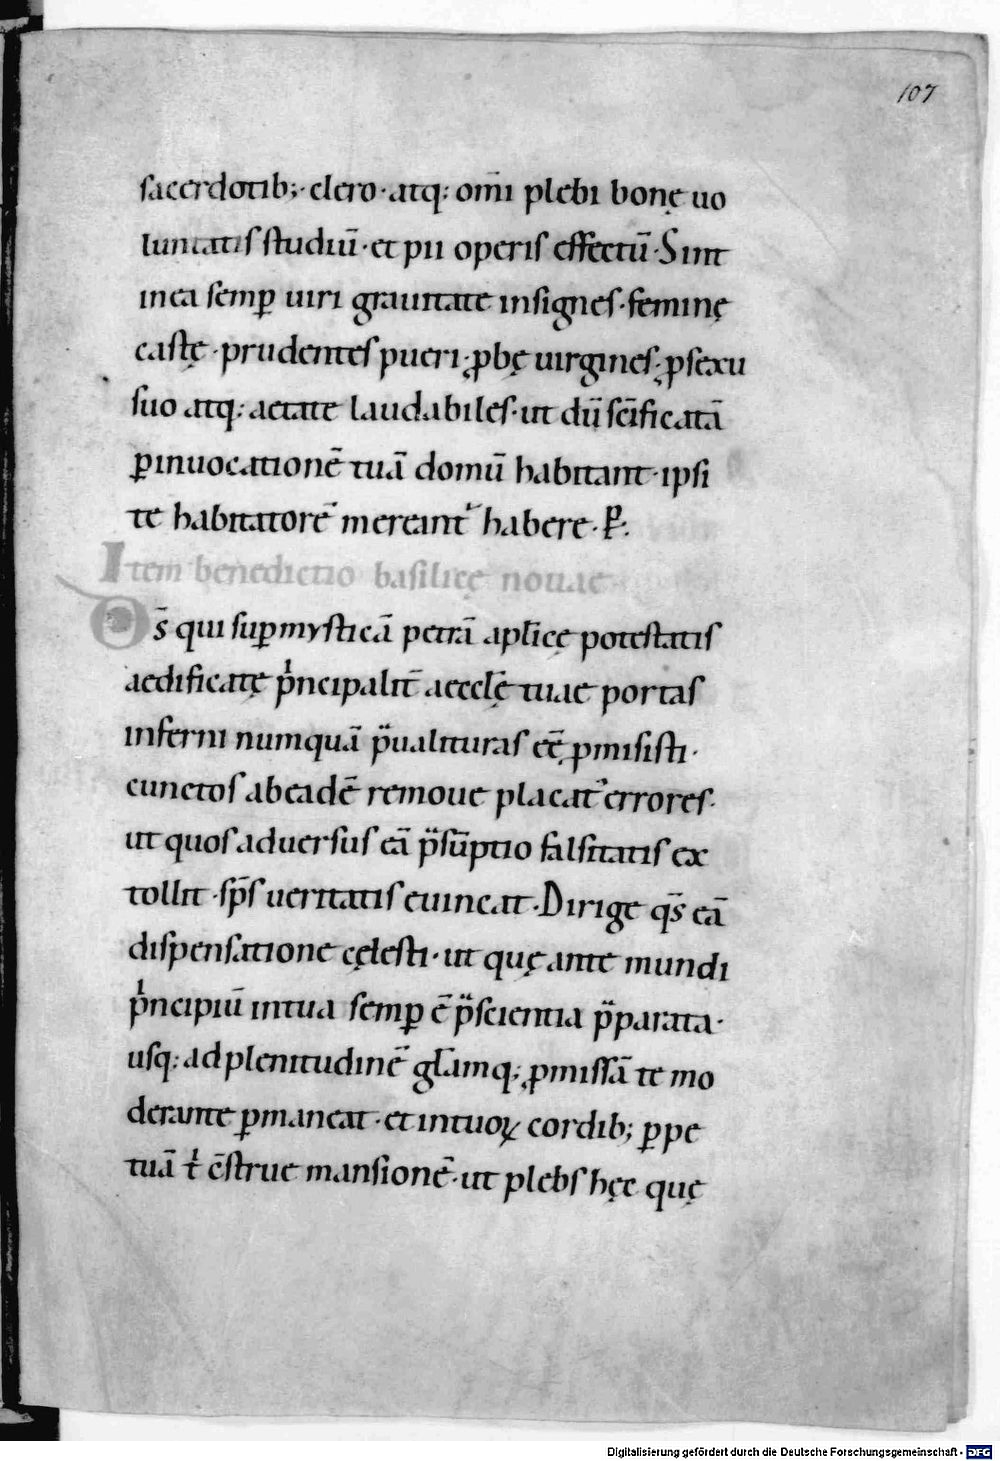 107
sacerdotib;· clero· atq; om̄i plebi bonę uo
luntatis studiū· et pii operis effectū· Sint
in ea semꝑ uiri grauitate insignes· feminę
castę· prudentes pueri· ꝓbę uirgines· ꝓ sexu
suo atq; aetate laudabiles· ut dū sc̄ificatā
ꝑ inuocationē tuā domū habitant· ipsi
te habitatorē mereant᷑ habere· P̄.
Item benedictio basilicę nouae
Ds̄ qui suꝑ mysticā petrā apłicę potestatis
aedificatę pͥncipalit̄ aecclę̄ tuae portas
inferni numquā p̄ualituras eę̄ ꝓmisisti·
cunctos ab eadē remoue placat᷒ errores·
ut quos aduersus eā p̄sūptio falsitatis ex
tollit· sp̄s ueritatis euincat· Dirige qs̄ eā
dispensatione cęlesti· ut quę ante mundi
pͥncipiū in tua semꝑ ē p̄scientia p̄parata·
usq; ad plenitudinē głamq; ꝓmissā te mo
derante ꝑmaneat· et in tuoꝝ cordib; ꝑpe
tuā tͥ c̄strue mansionē· ut plebs hęc quę
Digitalisierung gefördert durch die Deutsche Forschungsgemeinschaft - DFG